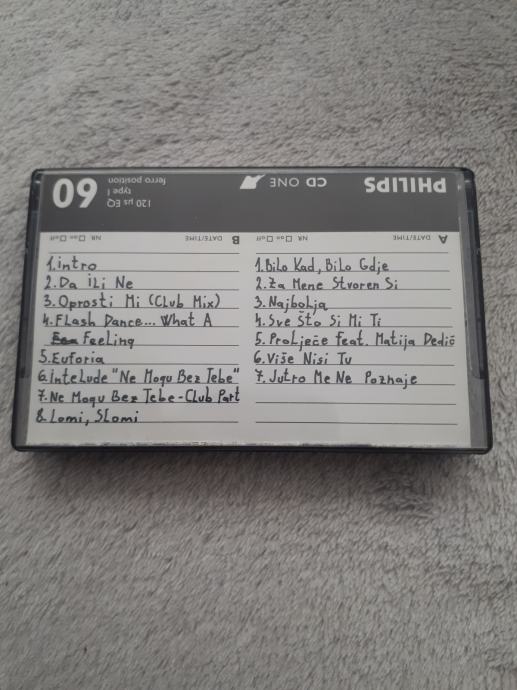 PHILIPS
CD ONE
120 µs EQ
type I
ferro position
60
B DATE/TIME NR. on off
1.intro
2.Da iLi Ne
3.Oprosti Mi (CLub Mix)
4.FLash Dance... What A
Feeling
5.Euforia
6.InteLude "Ne Mogu Bez Tebe"
7.Ne Mogu Bez Tebe-CLub Part
8.Lomi, SLomi
A DATE/TIME NR. on off
1.BiLo Kad, BiLo Gdje
2.Za Mene Stvoren Si
3.NajboLja
4.Sve Što Si Mi Ti
5.ProLjeće feat. Matija Dedić
6.Više Nisi Tu
7.Jutro Me Ne Poznaje